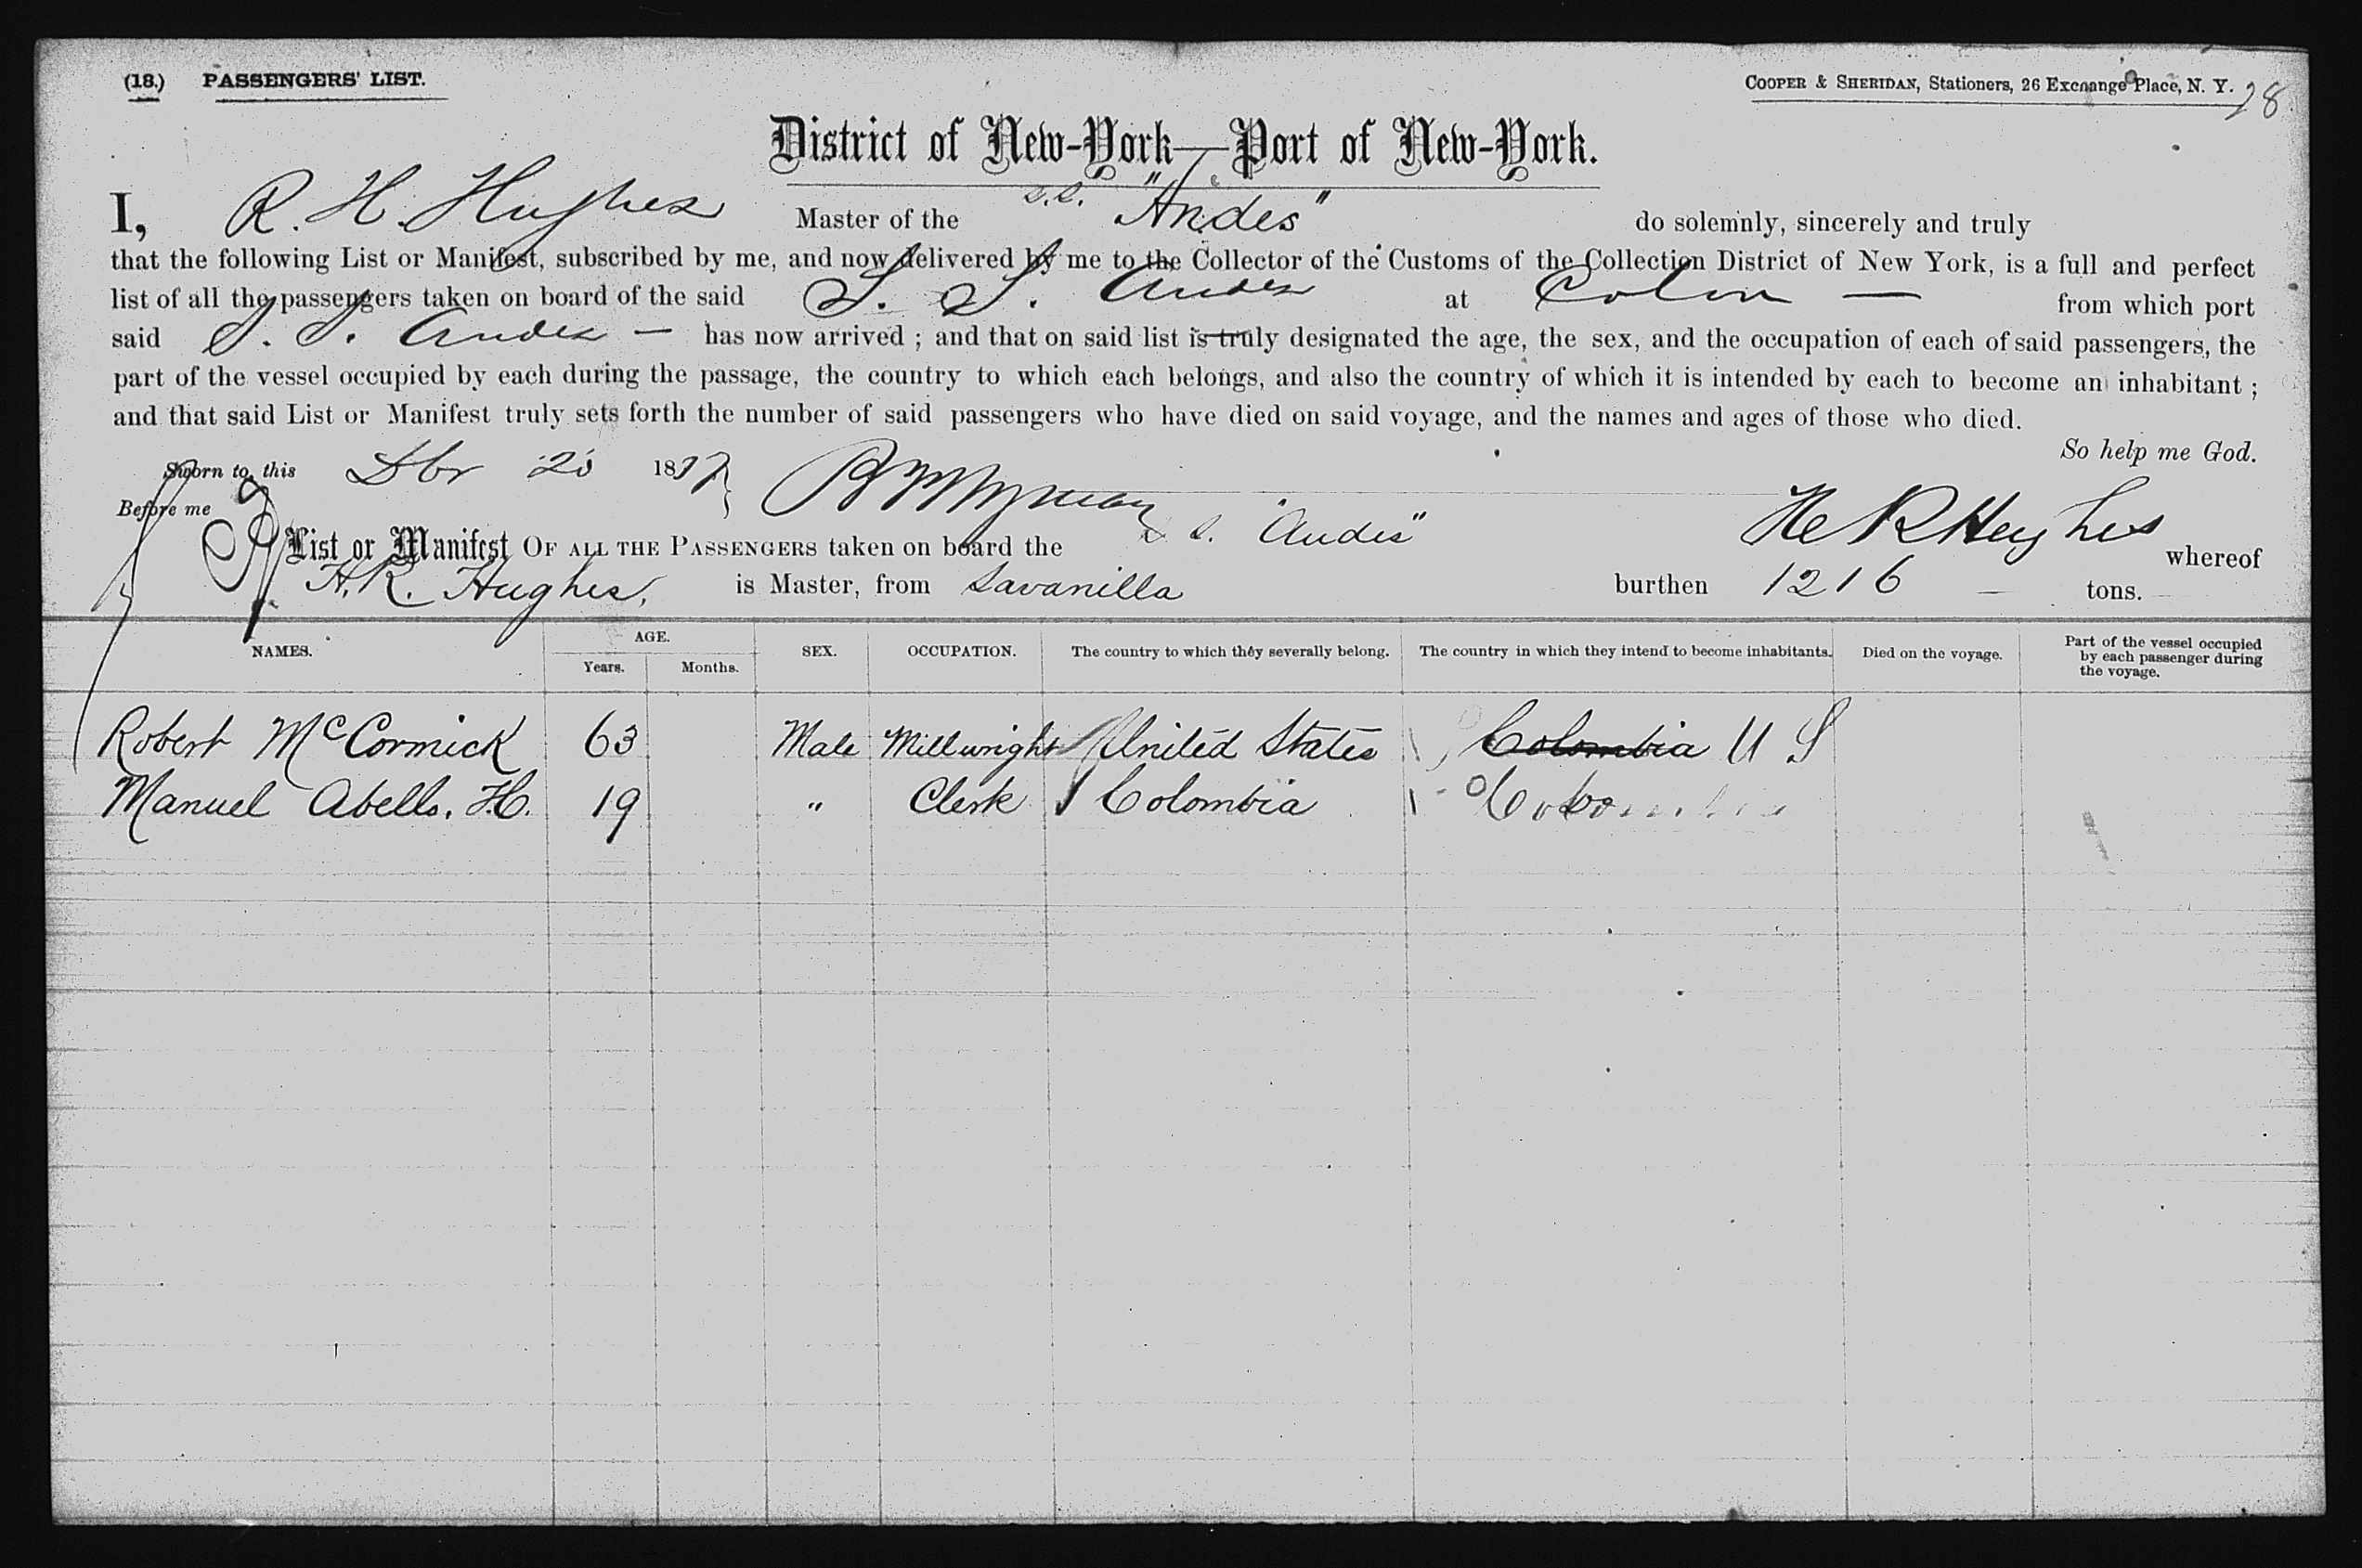 (18.) PASSENGERS' LIST.
COOPER & SHERIDAN, Stationers, 26 Exchange Place, N. Y. 28
District of New-York—Port of New-York.
I, R. H. Hughes Master of the S.S. "Andes" do solemnly, sincerely and truly
that the following List or Manifest, subscribed by me, and now delivered by me to the Collector of the Customs of the Collection District of New York, is a full and perfect
list of all the passengers taken on board of the said S. S. Andes at Colon — from which port
said S. S. Andes — has now arrived ; and that on said list is truly designated the age, the sex, and the occupation of each of said passengers, the
part of the vessel occupied by each during the passage, the country to which each belongs, and also the country of which it is intended by each to become an inhabitant ;
and that said List or Manifest truly sets forth the number of said passengers who have died on said voyage, and the names and ages of those who died.
So help me God.
Sworn to this Dbr 20 1877
Before me
H R Hughes
List or Manifest OF ALL THE PASSENGERS taken on board the S. S. "Andes" whereof
H. R. Hughes, is Master, from Savanilla burthen 1216 — tons.
NAMES. AGE. Years. Months. SEX. OCCUPATION. The country to which they severally belong. The country in which they intend to become inhabitants. Died on the voyage. Part of the vessel occupied by each passenger during the voyage.
Robert McCormick 63 Male Millwright United States Colombia U S
Manuel Abello. H. 19 " Clerk Colombia Colombia